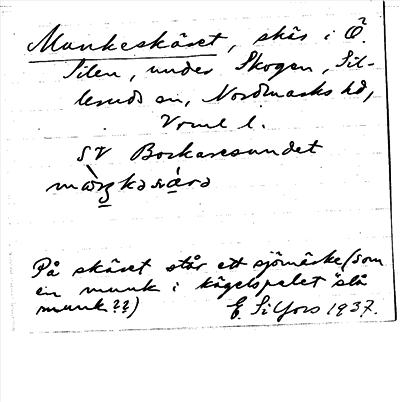 Munkeskäret, skär i Ö.
Silen, under Skogen, Sil-
leruds sn, Nordmarks hd,
Vrml l.
SV Bockaresundet
På skäret står ett sjömärke (som
en munk i kägelspelet "slå
munk"??)
E. Silfors 1937.